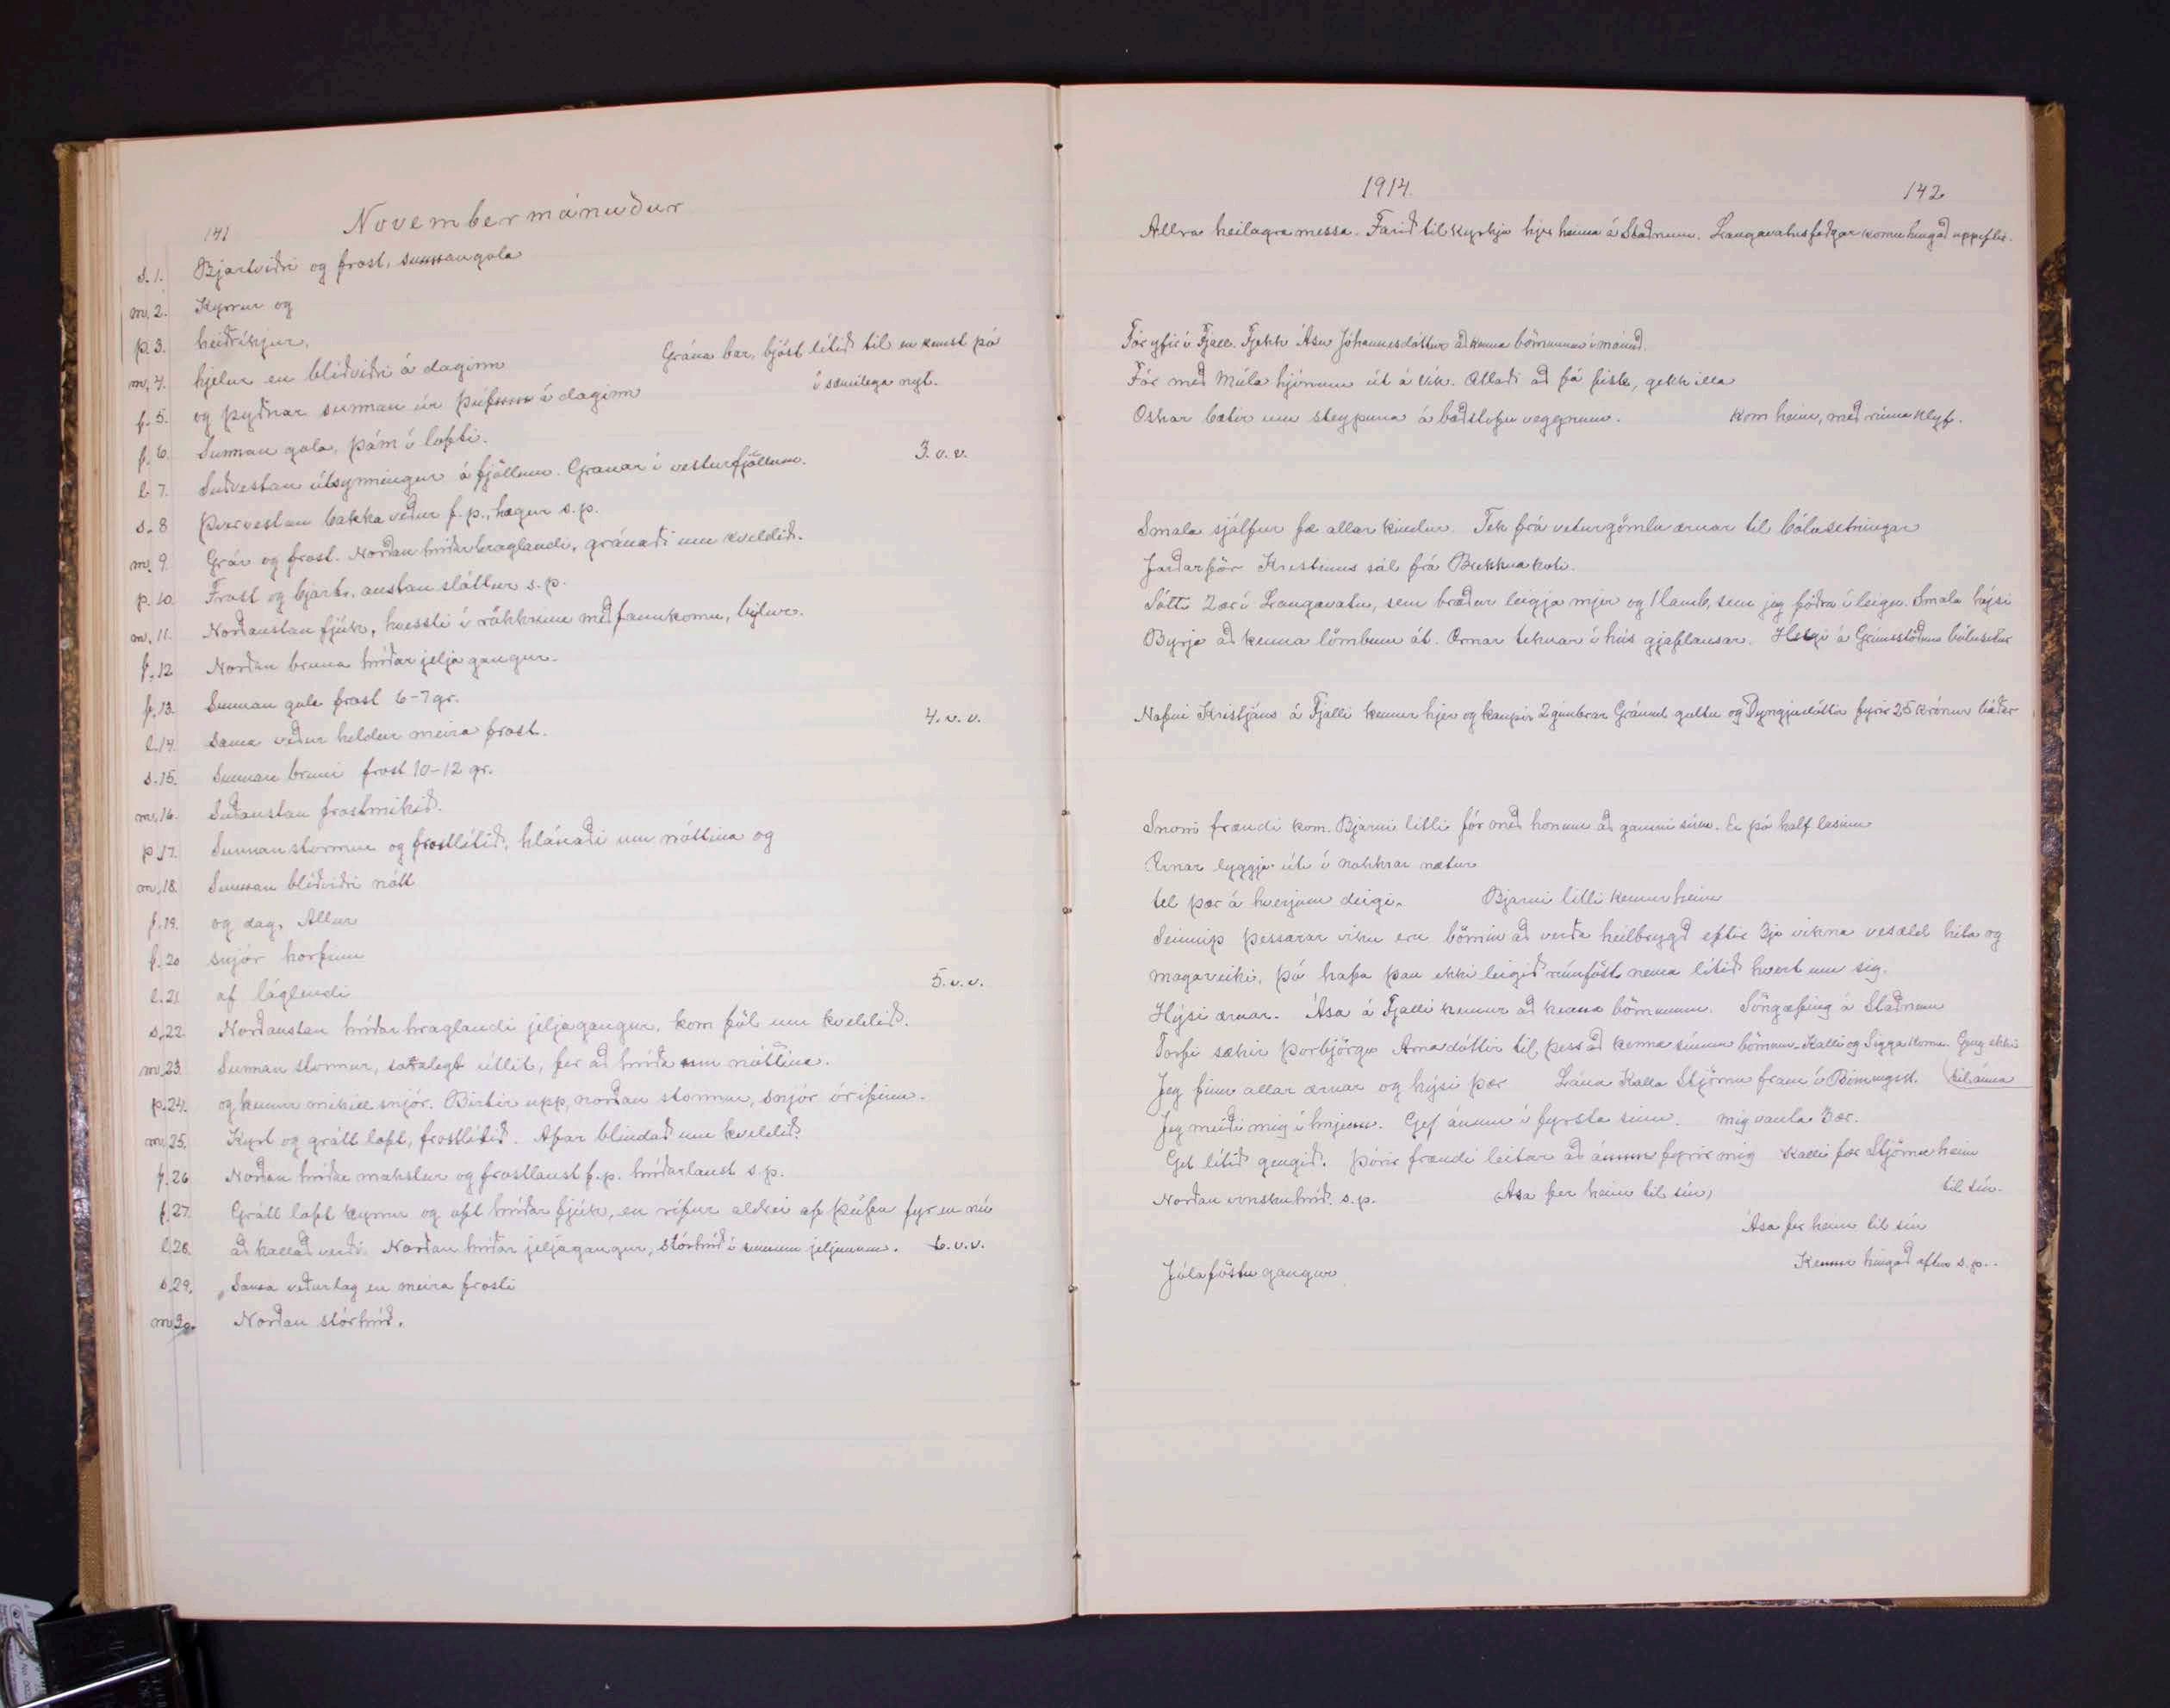 141
Novembermánuður
s. 1. Bjartviðri og frost, sunnangola
m. 2. Kyrrur og
þ. 3. heiðríkjur,
m. 4. hjelur en blíðviðri á daginn Grána bar, bjóst lítið til en kemst þó
f. 5. og þyðnar sunnan úr þúfum á daginn í sæmilega nyt.
f. 6. Sunnan gola, þám í lofti.
l. 7. Suðvestan útsynningur á fjöllum. Gránar í vesturfjöllum. 3. v. v.
s. 8 Þvervestan bakka veður f. p., hægur s. p.
m. 9. Grár og frost. Norðan hríðarhraglandi, gránaði um kveldið.
þ. 10. Frost og bjartv. austan sláttur s. p.
m. 11. Norðaustan fjúk, hvessti í rökkrinu með fannkomu, bylur.
f. 12 Norðan bruna hríðar jeljagangur.
f. 13. Sunnan gola frost 6-7 gr.
l. 14. Sama veður heldur meira frost. 4. v. v.
s. 15. Sunnan bruni frost 10-12 gr.
m. 16. Suðaustan frostmikið.
þ. 17. Sunnan stormur og frostlítið, hlánaði um nóttina og
m. 18. Sunnan blíðviðri nótt
f. 19. og dag. Allur
f. 20 snjór horfinn
l. 21 af láglendi 5. v. v.
s. 22. Norðaustan hríðar hraglandi jeljagangur, kom föl um kveldið.
m. 23. Sunnan stormur, útlit, fer að hríða um nóttina.
þ. 24. og kemur mikill snjór. Birtir upp, norðan stormur, snjór órifinn.
m. 25. Kyrt og grátt loft, frostlítið. Afar blindað um kveldið.
f. 26 Norðan hríðar mokstur og frostlaust f. p. hríðarlaust s. p.
f. 27. Grátt loft kyrrur og oft hríðar fjúk, en rífur aldrei af þúfu fyr en nú
l. 28. að kallað verði. Norðan hríðar jeljagangur, stórhríð í sumum jeljunum. 6. v. v.
s. 29. Sama veðurlag en meira frosti
m. 30. Norðan stórhríð.
1914.
142
Allra heilagra messa. Farið til kyrkju hjer heima á Staðnum. Langavatnsfeðgar komu hingað uppeftir.
Fór yfir í Fjall. Fjekk Ásu Jóhannesdóttur að kenna börnunum í mánuð.
Fór með Múla hjónum út á Vík. Ætlaði að fá fisk, gekk illa
Oskar bætir um steypuna á baðstofu veggnum. Kom heim, með rúma klyf.
Smala sjálfur fæ allar kindur. Tek frá veturgömlu ærnar til bólusetningar
Jarðarför Kristins sál frá Brekknakoti.
Sótti 2 ær í Langavatn, sem bræður leigja mjer og 1 lamb, sem jeg fóðra í leigu. Smala hýsi
Byrja að kenna lömbum át. Ærnar teknar í hús gjaflausar. Helgi á Grímsstöðum bólusetur
Nafni Kristjáns á Fjalli kemur hjer og kaupir 2 gimbrar Gránud gultu og Dyngjudóttir fyrir 25 krónur báðar
Snorri frændi kom. Bjarni litli fór með honum að gamni sínu. Er þó half lasinn
Ærnar lyggja úti í nokkrar nætur
tel þær á hverjum deigi. Bjarni litli kemur heim
Seinnip þessarar viku eru börnin að verða heilbrygð eftir 3ja vikna vesæld hita og
magaveiki, þó hafa þau ekki legið rúmföst nema lítið hvert um sig.
Hýsi ærnar. Ása á Fjalli kemur að kenna börnunum. Söngæfing á Staðnum
Torfi sækir Þorbjörgu Árnadóttir til þess að kenna sínum börnum. Kalli og Sigga koma. Gang ekki
Jeg finn allar ærnar og hýsi þær Lána Kalla Stjörnu fram í til ánna
Jeg meiði mig í hnjenu. Gef ánum í fyrsta sinn. Mig vanta 3 ær.
Get lítið gengið. Þórir frændi leitar að ánum fyrir mig Kalli fær Stjörnu heim
Norðan vonskuhríð. s. p. (Ása fer heim til sín) til sín.
Ása fer heim til sín
Jólaföstu gangur Kemur hingað aftur s. p.